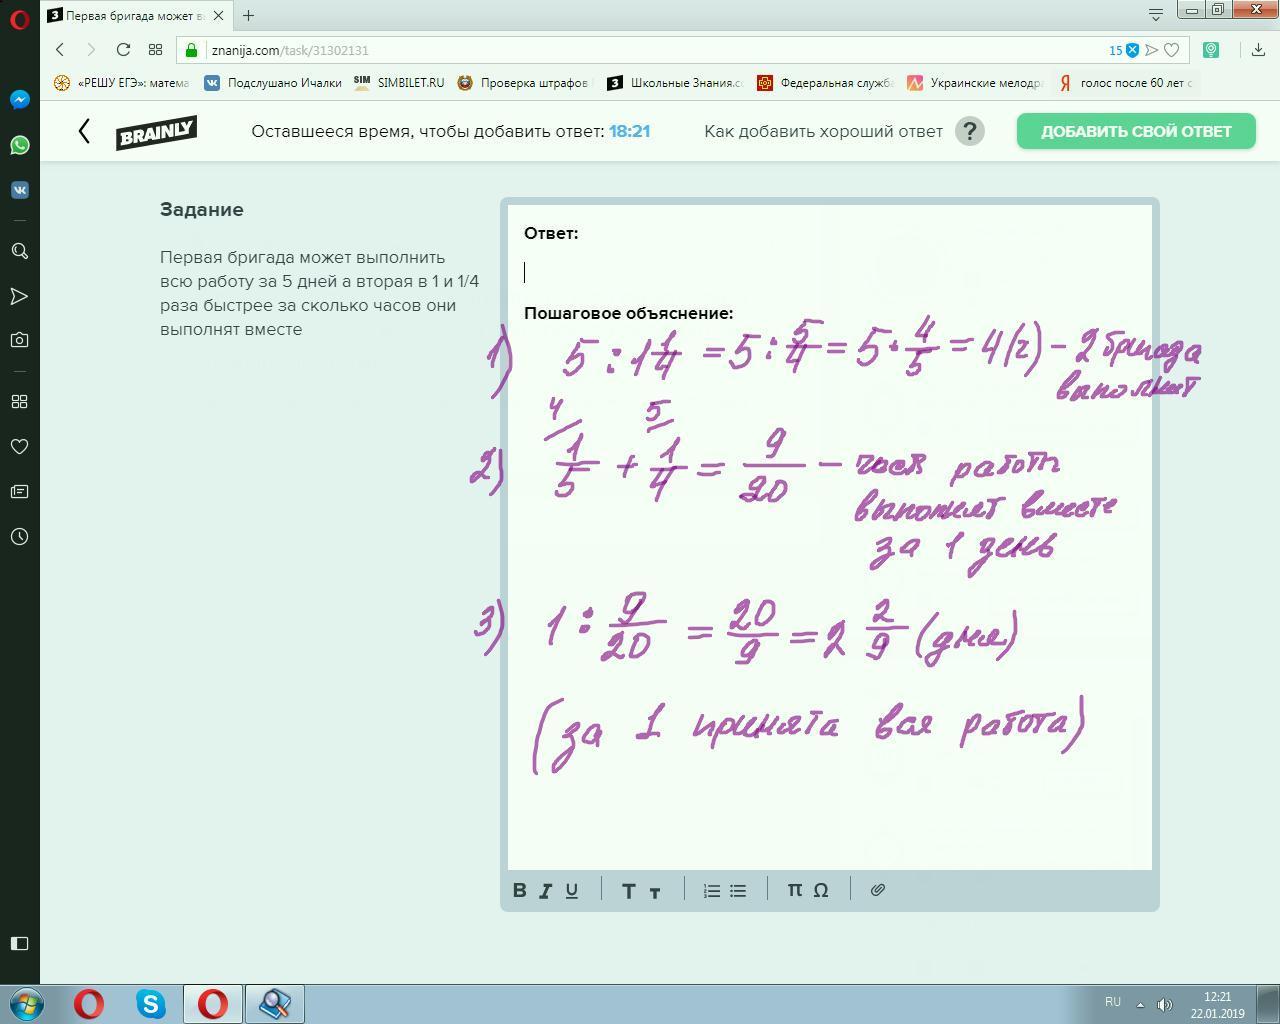 Первая бригада может вы
znanija.com/task/31302131
15
«РЕШУ ЕГЭ»: матема
Подслушано Ичалки
SIM SIMBILET.RU
Проверка штрафов
Школьные Знания.co
Федеральная служба
Украинские мелодра
Я голос после 60 лет с
BRAINLY
Оставшееся время, чтобы добавить ответ: 18:21
Как добавить хороший ответ ?
ДОБАВИТЬ СВОЙ ОТВЕТ
Задание
Первая бригада может выполнить
всю работу за 5 дней а вторая в 1 и 1/4
раза быстрее за сколько часов они
выполнят вместе
Ответ:
Пошаговое объяснение:
1) 5 : 1 1/4 = 5 : 5/4 = 5 · 4/5 = 4 (г) – 2 бригада
выполнит
4/ 5/
2) 1/5 + 1/4 = 9/20 – часть работы
выполнят вместе
за 1 день
3) 1 : 9/20 = 20/9 = 2 2/9 (дня)
(за 1 принята вся работа)
B I U T т π Ω
RU
12:21
22.01.2019